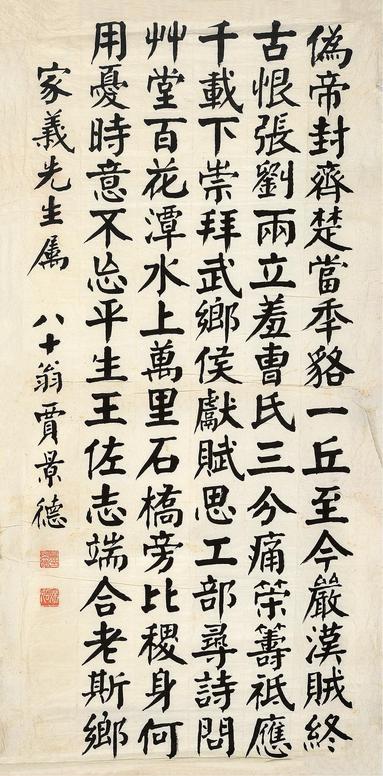 偽帝封齊楚當秊貉一丘至今嚴漢賊終
古恨張劉兩立羞曹氏三分痛策籌祇應
千載下崇拜武鄉侯獻賦思工部尋詩問
艸堂百花潭水上萬里石橋旁比稷身何
用憂時意不忘平生王佐志端合老斯鄉
家義先生属 八十翁賈景德